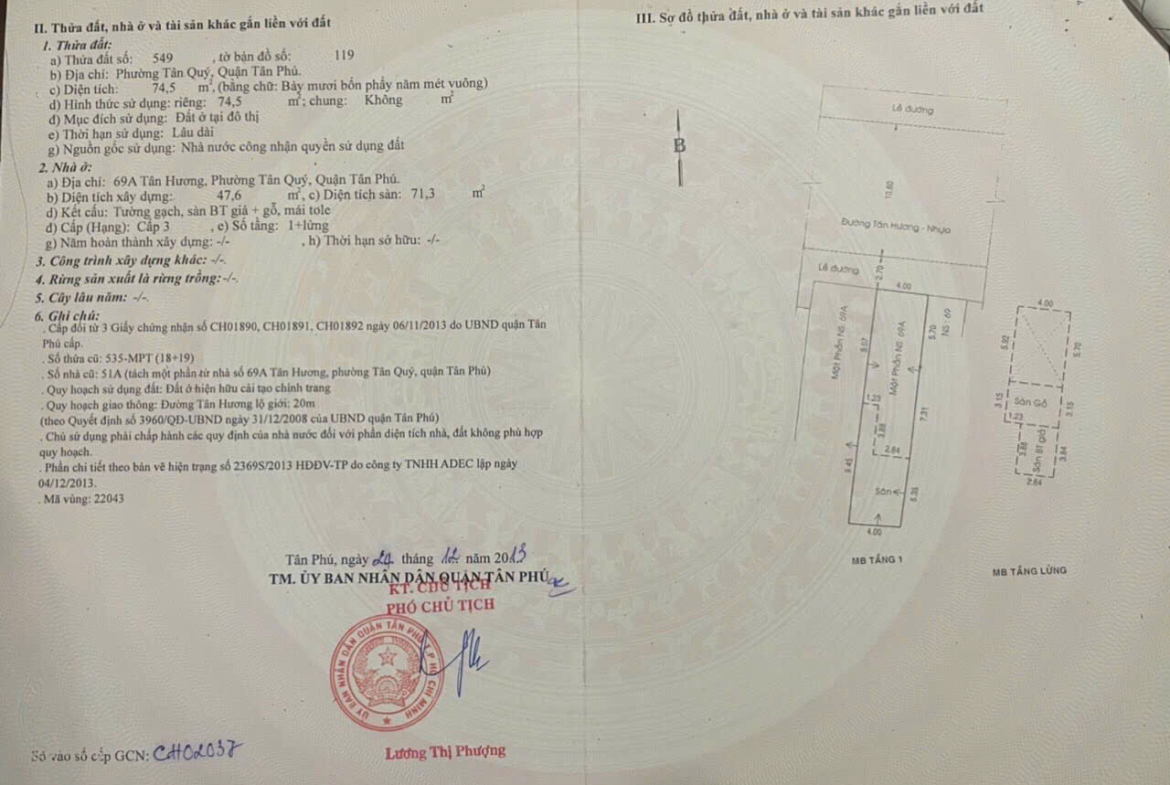 II. Thửa đất, nhà ở và tài sản khác gắn liền với đất
1. Thửa đất:
a) Thửa đất số: 549 , tờ bản đồ số: 119
b) Địa chỉ: Phường Tân Quý, Quận Tân Phú.
c) Diện tích: 74,5 m², (bằng chữ: Bảy mươi bốn phẩy năm mét vuông)
d) Hình thức sử dụng: riêng: 74,5 m²; chung: Không m²
đ) Mục đích sử dụng: Đất ở tại đô thị
e) Thời hạn sử dụng: Lâu dài
g) Nguồn gốc sử dụng: Nhà nước công nhận quyền sử dụng đất
2. Nhà ở:
a) Địa chỉ: 69A Tân Hương, Phường Tân Quý, Quận Tân Phú.
b) Diện tích xây dựng: 47,6 m², c) Diện tích sàn: 71,3 m²
d) Kết cấu: Tường gạch, sàn BT giả + gỗ, mái tole
đ) Cấp (Hạng): Cấp 3 , e) Số tầng: 1+lửng
g) Năm hoàn thành xây dựng: -/- , h) Thời hạn sở hữu: -/-
3. Công trình xây dựng khác: -/-.
4. Rừng sản xuất là rừng trồng: -/-.
5. Cây lâu năm: -/-.
6. Ghi chú:
. Cấp đổi từ 3 Giấy chứng nhận số CH01890, CH01891, CH01892 ngày 06/11/2013 do UBND quận Tân
Phú cấp.
. Số thửa cũ: 535-MPT (18+19)
. Số nhà cũ: 51A (tách một phần từ nhà số 69A Tân Hương, phường Tân Quý, quận Tân Phú)
. Quy hoạch sử dụng đất: Đất ở hiện hữu cải tạo chỉnh trang
. Quy hoạch giao thông: Đường Tân Hương lộ giới: 20m
(theo Quyết định số 3960/QĐ-UBND ngày 31/12/2008 của UBND quận Tân Phú)
. Chủ sử dụng phải chấp hành các quy định của nhà nước đối với phần diện tích nhà, đất không phù hợp
quy hoạch.
. Phần chi tiết theo bản vẽ hiện trạng số 2369S/2013 HĐĐV-TP do công ty TNHH ADEC lập ngày
04/12/2013.
. Mã vùng: 22043
Tân Phú, ngày 24 tháng 12 năm 2013
TM. ỦY BAN NHÂN DÂN QUẬN TÂN PHÚ
KT. CHỦ TỊCH
PHÓ CHỦ TỊCH
ỦY BAN NHÂN DÂN QUẬN TÂN PHÚ T.P HỒ CHÍ MINH
Lương Thị Phượng
Số vào sổ cấp GCN: CH02037
III. Sơ đồ thửa đất, nhà ở và tài sản khác gắn liền với đất
B
Lề đường
10.60
Đường Tân Hương - Nhựa
Lề đường
2.70
4.00
Một Phần NS: 69A
9.07
Một Phần NS: 69A
5.70
NS: 69
1.23
3.88
7.31
2.84
9.45
Sân
5.35
4.00
MB TẦNG 1
4.00
5.92
5.70
3.15
Sàn Gỗ
3.15
1.23
3.88
Sàn BT giả
3.84
2.84
MB TẦNG LỬNG